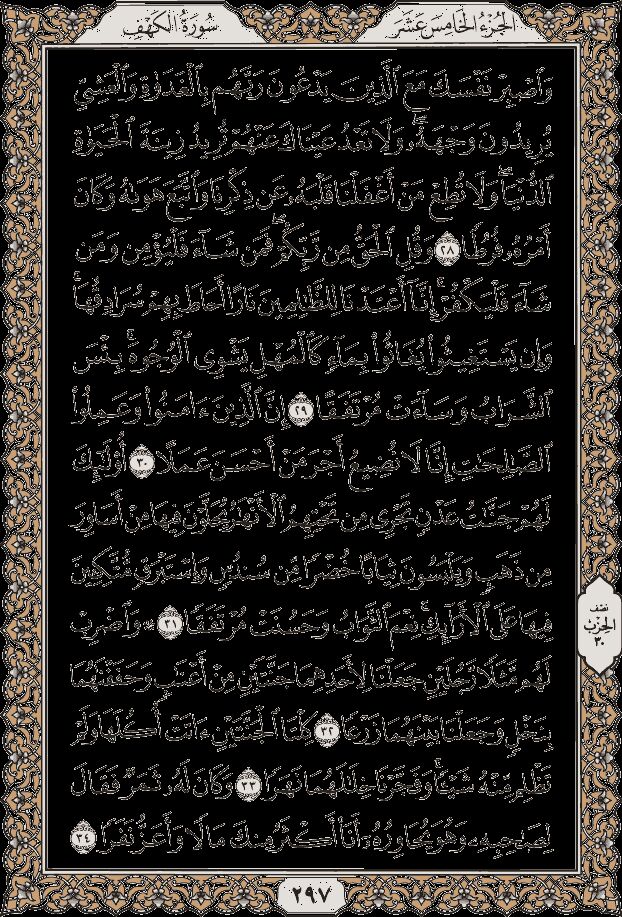 الجزء الخامس عشر
سورة الكهف
وَٱصْبِرْ نَفْسَكَ مَعَ ٱلَّذِينَ يَدْعُونَ رَبَّهُم بِٱلْغَدَوٰةِ وَٱلْعَشِيِّ
يُرِيدُونَ وَجْهَهُۥۖ وَلَا تَعْدُ عَيْنَاكَ عَنْهُمْ تُرِيدُ زِينَةَ ٱلْحَيَوٰةِ
ٱلدُّنْيَاۖ وَلَا تُطِعْ مَنْ أَغْفَلْنَا قَلْبَهُۥ عَن ذِكْرِنَا وَٱتَّبَعَ هَوَىٰهُ وَكَانَ
أَمْرُهُۥ فُرُطًا ٢٨ وَقُلِ ٱلْحَقُّ مِن رَّبِّكُمْۖ فَمَن شَآءَ فَلْيُؤْمِن وَمَن
شَآءَ فَلْيَكْفُرْۚ إِنَّآ أَعْتَدْنَا لِلظَّٰلِمِينَ نَارًا أَحَاطَ بِهِمْ سُرَادِقُهَاۚ
وَإِن يَسْتَغِيثُوا۟ يُغَاثُوا۟ بِمَآءٍ كَٱلْمُهْلِ يَشْوِى ٱلْوُجُوهَۚ بِئْسَ
ٱلشَّرَابُ وَسَآءَتْ مُرْتَفَقًا ٢٩ إِنَّ ٱلَّذِينَ ءَامَنُوا۟ وَعَمِلُوا۟
ٱلصَّٰلِحَٰتِ إِنَّا لَا نُضِيعُ أَجْرَ مَنْ أَحْسَنَ عَمَلًا ٣٠ أُو۟لَٰٓئِكَ
لَهُمْ جَنَّٰتُ عَدْنٍ تَجْرِى مِن تَحْتِهِمُ ٱلْأَنْهَٰرُ يُحَلَّوْنَ فِيهَا مِنْ أَسَاوِرَ
مِن ذَهَبٍ وَيَلْبَسُونَ ثِيَابًا خُضْرًا مِّن سُندُسٍ وَإِسْتَبْرَقٍ مُّتَّكِـِٔينَ
فِيهَا عَلَى ٱلْأَرَآئِكِۚ نِعْمَ ٱلثَّوَابُ وَحَسُنَتْ مُرْتَفَقًا ٣١ ۞ وَٱضْرِبْ
لَهُم مَّثَلًا رَّجُلَيْنِ جَعَلْنَا لِأَحَدِهِمَا جَنَّتَيْنِ مِنْ أَعْنَٰبٍ وَحَفَفْنَٰهُمَا
بِنَخْلٍ وَجَعَلْنَا بَيْنَهُمَا زَرْعًا ٣٢ كِلْتَا ٱلْجَنَّتَيْنِ ءَاتَتْ أُكُلَهَا وَلَمْ
تَظْلِم مِّنْهُ شَيْـًٔاۚ وَفَجَّرْنَا خِلَٰلَهُمَا نَهَرًا ٣٣ وَكَانَ لَهُۥ ثَمَرٌ فَقَالَ
لِصَٰحِبِهِۦ وَهُوَ يُحَاوِرُهُۥٓ أَنَا۠ أَكْثَرُ مِنكَ مَالًا وَأَعَزُّ نَفَرًا ٣٤
نصف
الحزب
٣٠
٢٩٧